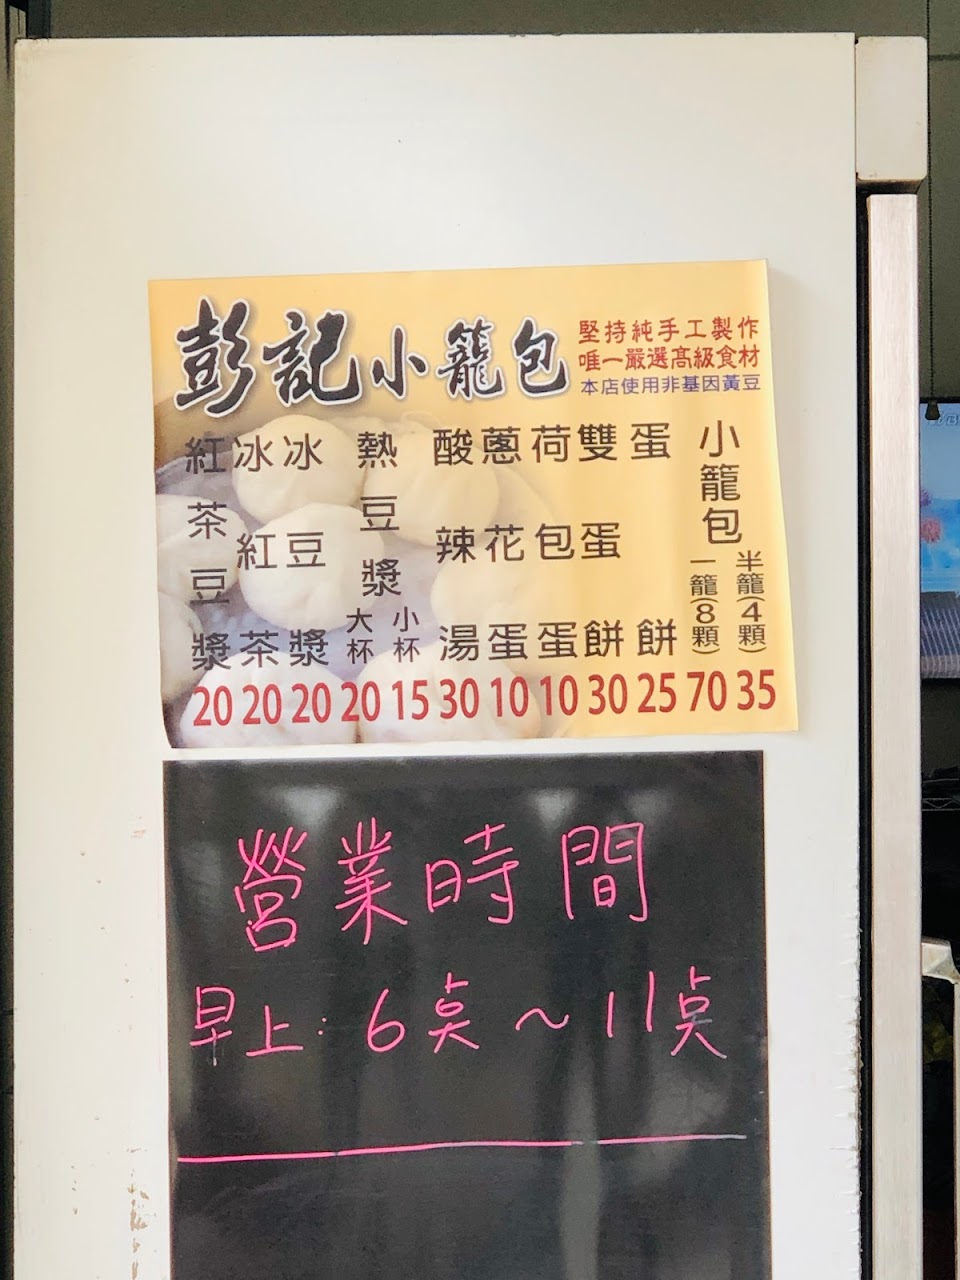 彭記小籠包
堅持純手工製作
唯一嚴選高級食材
本店使用非基因黃豆
小籠包
半籠(4顆) 35
一籠(8顆) 70
蛋餅 25
雙蛋餅 30
荷包蛋 10
蔥花蛋 10
酸辣湯 30
熱豆漿
小杯 15
大杯 20
冰豆漿 20
冰紅茶 20
紅茶豆漿 20
營業時間
早上:6点～11点